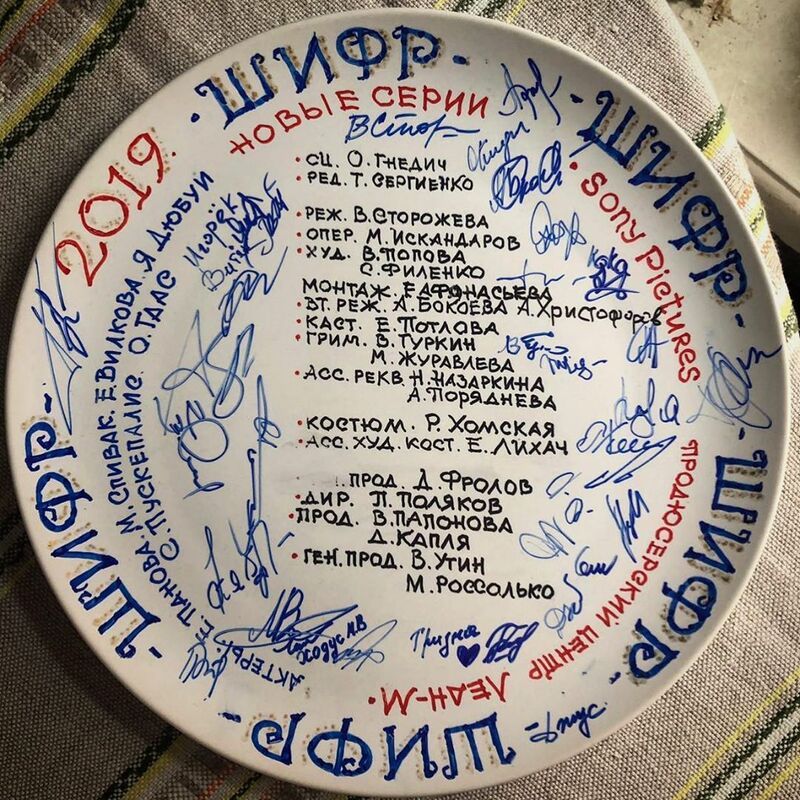 ШИФР-
ШИФР-
ШИФР-
ШИФР-
ШИФР-
ШИФР-
2019.
НОВЫЕ СЕРИИ
• SONY PICTURES
ПРОДЮСЕРСКИЙ ЦЕНТР ЛЕАН-М.
• СЦ. О. ГНЕДИЧ
• РЕД. Т. СЕРГИЕНКО
• РЕЖ. В. СТОРОЖЕВА
• ОПЕР. М. ИСКАНДАРОВ
• ХУД. В. ПОПОВА
С. ФИЛЕНКО
МОНТАЖ. Е. АФОНАСЬЕВА
• ВТ. РЕЖ. А. БОКОЕВА А. ХРИСТОФОРОВ
• КАСТ. Е. ПОТЛОВА
• ГРИМ. В. ТУРКИН
М. ЖУРАВЛЕВА
• АСС. РЕКВ. Н. НАЗАРКИНА
А. ПОРЯДНЕВА
• КОСТЮМ. Р. ХОМСКАЯ
• АСС. ХУД. КОСТ. Е. ЛИХАЧ
ПРОД. Д. ФРОЛОВ
• ДИР. П. ПОЛЯКОВ
• ПРОД. В. ПАПОНОВА
Д. КАПЛЯ
• ГЕН. ПРОД. В. УТИН
М. РОССОЛЬКО
АКТЕРЫ: Е. ПАНОВА. М. СПИВАК. Е. ВИЛКОВА. Я ДЮБУИ
С. ПУСКЕПАЛИС О. ГААС
Игорёк
Ходус А.В